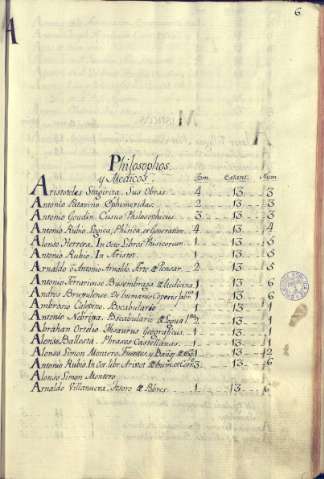 6
A
Philosophos,
y Medicos. Tom. Estant. Num.
Aristoteles Stagirita, Sus Obras 4 13 3
Antonio 2 13 3
Antonio Goudin Cursus Philosophicus 3 13 3
Antonio Rubio Logica, Phisica, et Generatione 4 13 4
Alonso Herrera, In Octo Libros Phisicorum 1 13 5
Antonio Rubio. In Aristot. 1 13 5
Arnaldo ò Antonio Arnaldo Arte de Pensar 2 13 5
Antonio de Medicina 1 13 6
Andres De humani Corporis fabr. 1 13 6
Ambrosio Calepino. Bocabulario 1 13
Antonio Nebrixa. Bocabulario 1 13
Abrahan Ortelio Thesaurus Geographicus 1 13
Alonso Ballesta, Phrases Castellanas 1 13
Alonso Simon Montero, Fuentes, y Baños 1 13 12
Antonio Rubio In Aristot. 3 13 6
Alonso Simon Montero
Arnaldo Villanueva, Tesoro de Pobres 1 13 6